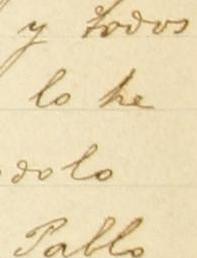 y todos
lo he
dolo
Pablo